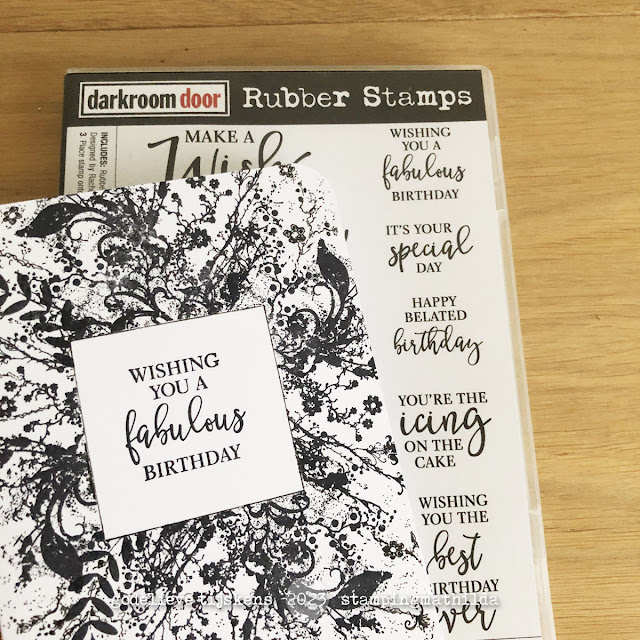 darkroom door Rubber Stamps
INCLUDES: Rubbe
Designed by Rach
3 Place stamp onto
MAKE A
Wish
WISHING
YOU A
fabulous
BIRTHDAY
IT'S YOUR
special
DAY
HAPPY
BELATED
birthday
YOU'RE THE
icing
ON THE
CAKE
WISHING
YOU THE
best
BIRTHDAY
ever
WISHING
YOU A
fabulous
BIRTHDAY
godelieve tijskens 2023 stampingmathilda